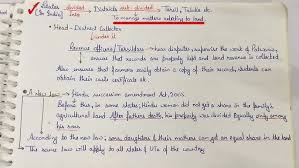 States divided into Districts sub divided → Tahsil, Taluka etc.
(In India)
To manage matters relating to land.
• Head - District Collector
under it
Revenue officers/Tehsildars → hear disputes, supervise the work of Patwaris,
ensure that records are properly kept and land revenue is collected.
Also ensure that farmers easily obtain a copy of their records, students can
obtain their caste certificate etc.
• A new law - Hindu succession amendment Act, 2005.
Before this, in some states, Hindu women did not get a share in the family's
agricultural land. After father's death, his property was divided equally only among
his sons.
According to the new law; sons, daughters & their mothers can get an equal share in the land.
The same law will apply to all states & UTs of the country.